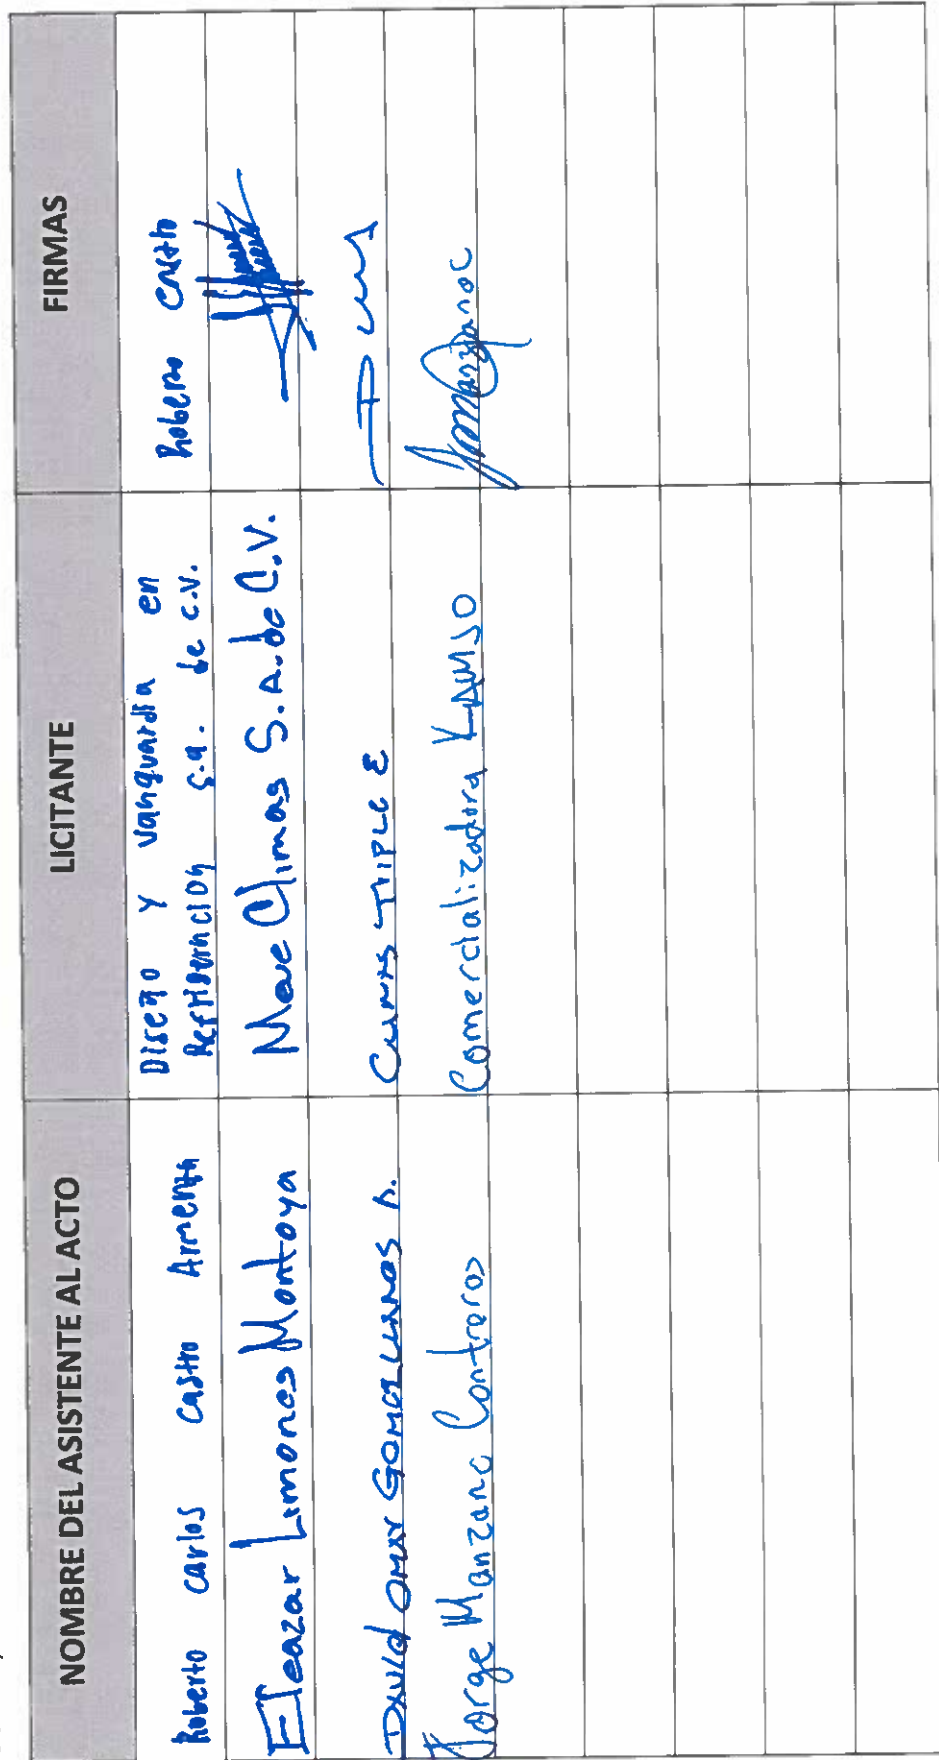 NOMBRE DEL ASISTENTE AL ACTO LICITANTE FIRMAS
Roberto carlos castro Armenta Diseño y vanguardia en Roberto Castro
Refrigeración s.a. de c.v.
Eleazar Limones Montoya Move Climas S.A. de C.V.
David Omar Gomez Llanos A. Climas Triple E
Jorge Manzano Contreros Comercializadora KAMJO JManzanoc